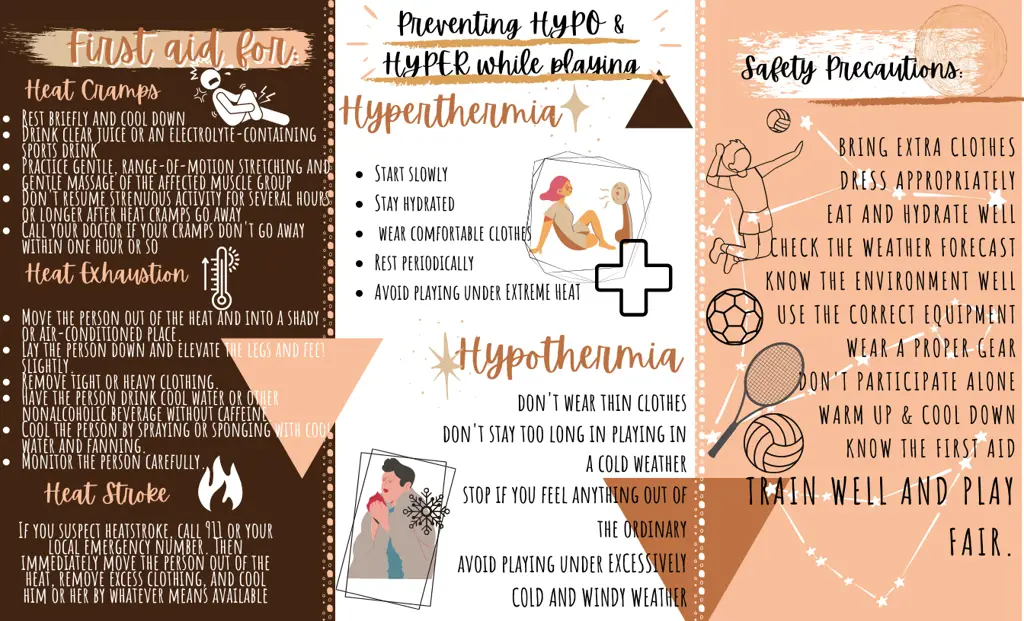 First aid for:
Heat Cramps
Rest briefly and cool down
Drink clear juice or an electrolyte-containing
sports drink
Practice gentle, range-of-motion stretching and
gentle massage of the affected muscle group
Don't resume strenuous activity for several hours
or longer after heat cramps go away
Call your doctor if your cramps don't go away
within one hour or so
Heat Exhaustion
Move the person out of the heat and into a shady
or air-conditioned place.
Lay the person down and elevate the legs and feet
slightly.
Remove tight or heavy clothing.
Have the person drink cool water or other
nonalcoholic beverage without caffeine
Cool the person by spraying or sponging with cool
water and fanning.
Monitor the person carefully.
Heat Stroke
If you suspect heatstroke, call 911 or your
local emergency number. Then
immediately move the person out of the
heat, remove excess clothing, and cool
him or her by whatever means available
Preventing HYPO &
HYPER while playing
Hyperthermia
Start slowly
Stay hydrated
wear comfortable clothes
Rest periodically
Avoid playing under EXTREME HEAT
Hypothermia
Don't wear thin clothes
Don't stay too long in playing in
a cold weather
Stop if you feel anything out of
the ordinary
Avoid playing under EXCESSIVELY
cold and windy weather
Safety Precautions:
Bring extra clothes
Dress appropriately
Eat and hydrate well
Check the weather forecast
Know the environment well
Use the correct equipment
Wear a proper gear
Don't participate alone
Warm up & cool down
Know the first aid
Train well and play
fair.